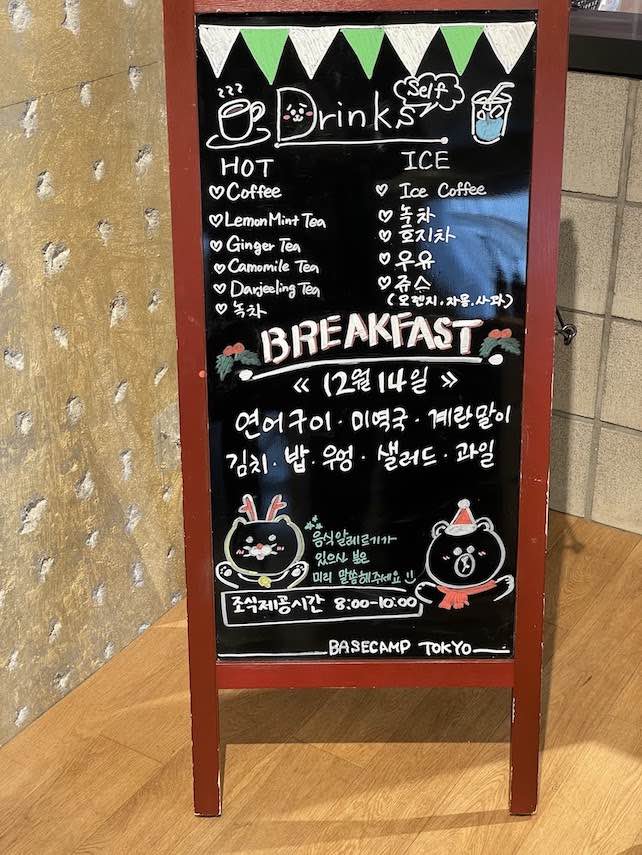 Drinks
Self
HOT
♡ Coffee
♡ Lemon Mint Tea
♡ Ginger Tea
♡ Camomile Tea
♡ Darjeeling Tea
♡ 녹차
ICE
♡ Ice Coffee
♡ 녹차
♡ 호지차
♡ 우유
♡ 쥬스
(오렌지.자몽.사과)
BREAKFAST
« 12월 14일 »
연어구이 · 미역국 · 계란말이
김치 · 밥 · 우엉 · 샐러드 · 과일
음식알레르기가
있으신 분은
미리 말씀해주세요
조식제공시간 8:00-10:00
BASECAMP TOKYO